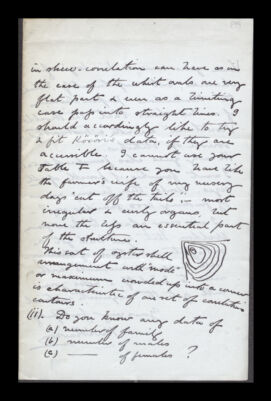 in skew-correlation can have as in
the case of the whist cards are very
flat part & even as a limiting
case pass into straight lines. I
should accordingly like to try
& fit data, if they are
accessible. I cannot use your
Table because you have like
the farmer's wife of my nursery
days 'cut off the tails' — most
irregular & curly organs, but
none the less an essential part
of the
This sort of oyster shell
arrangement with mode
or maximum crowded up into a corner
is characteristic of one set of
contours.
(ii). Do you know any data of
(a) number of family
(b) number of males
(c) —— of females ?